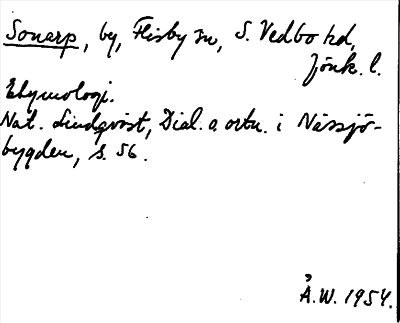 Sonarp, by, Flisby sn, S. Vedbo hd,
Jönk. l.
Etymologi.
Nat. Lindqvist, Dial. o. ortn. i Nässjö-
bygden, s. 56.
Å.W. 1954.